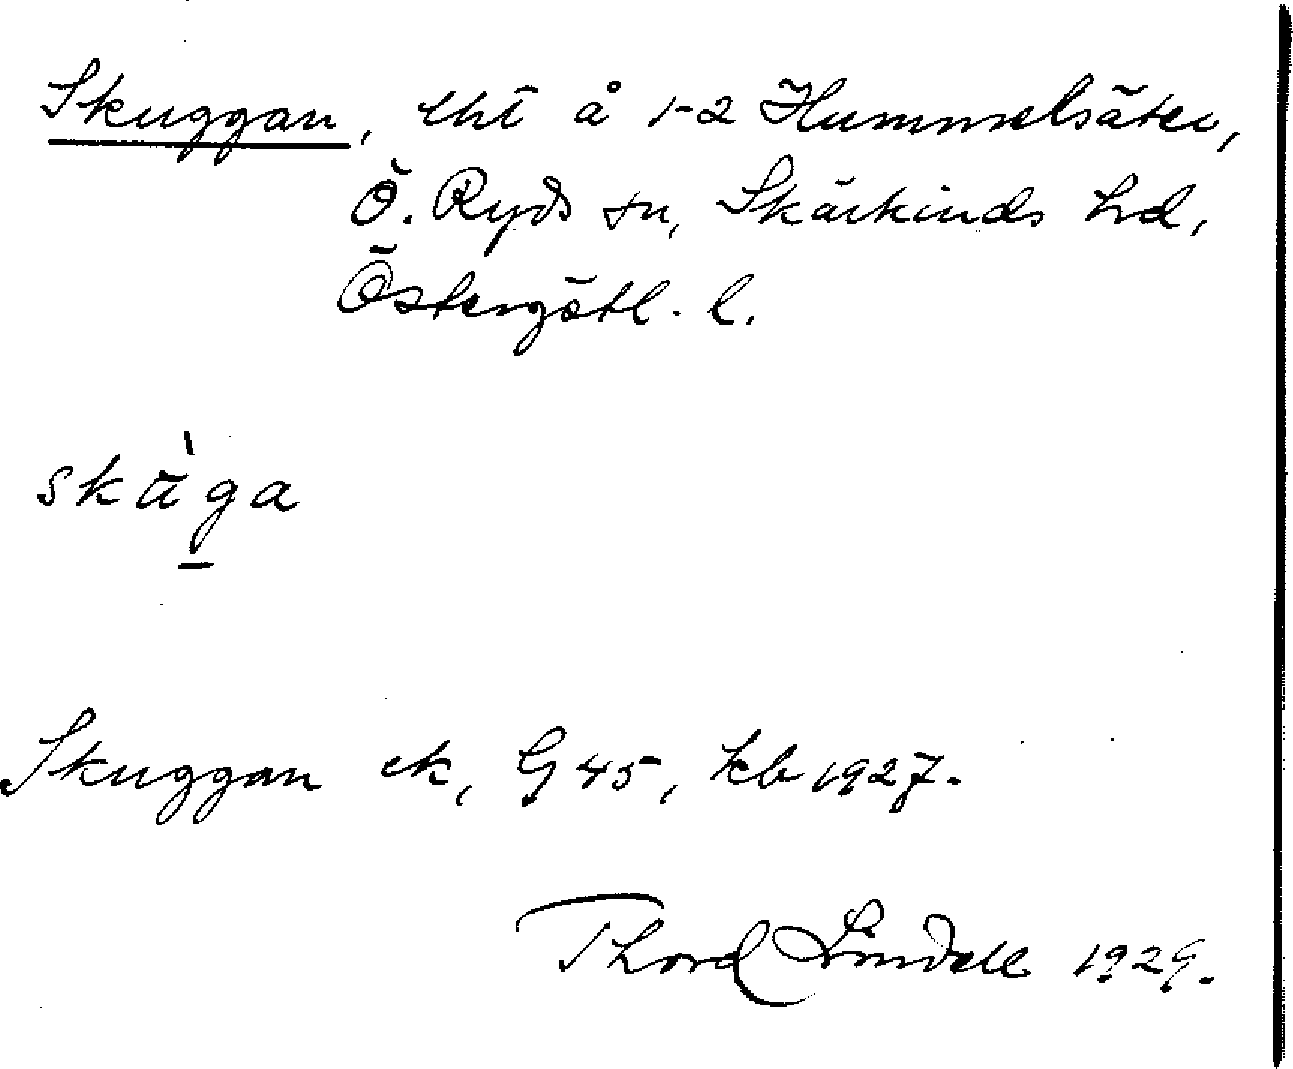 Skuggan, lht å 1-2 Hummelsäter,
Ö. Ryds sn, Skärkinds hd,
Östergötl. l.
sku̇̀ga
Skuggan ek, G 45, kb 1927.
Thord Lindell 1929.